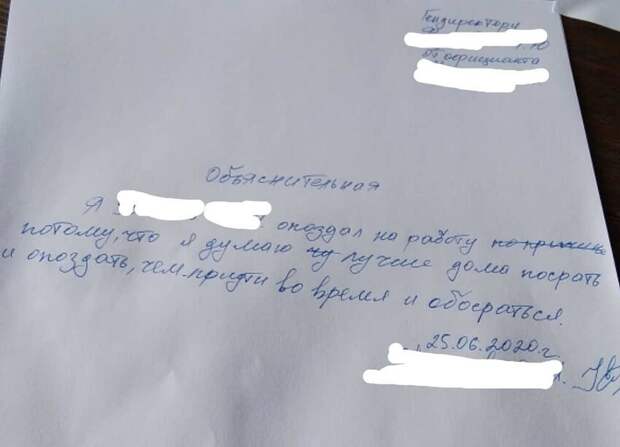 Гендиректору
От официанта
Объяснительная
Я опоздал на работу по причине
потому, что я думаю чу лучше дома посрать
и опоздать, чем придти во время и обосраться.
25.06.2020 г.